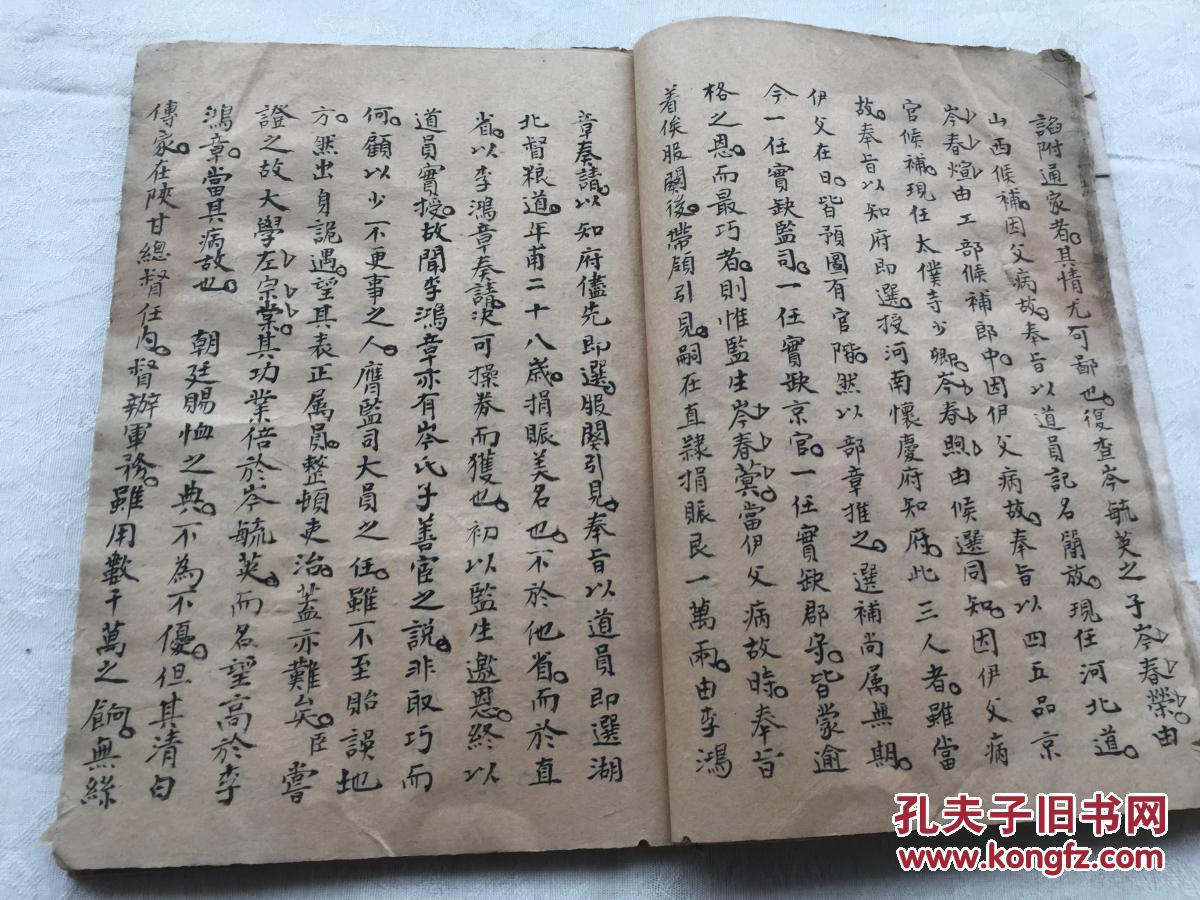 諂附通家者其情尤可鄙也復查岑毓英之子岑春榮由
山西候補因父病故奉旨以道員記名簡放現任河北道
岑春煊由工部候補郎中因伊父病故奉旨以四五品京
官候補現任太僕寺少卿岑春煦由候選同知因伊父病
故奉旨以知府即選授河南懷慶府知府此三人者雖當
伊父在日皆預圖有官階然以部章推之選補尚属無期
今一任實缺監司一任實缺京官一任實缺郡守皆蒙逾
格之恩而最巧者則惟監生岑春蓂當伊父病故時奉旨
着俟服闋後帶領引見嗣在直隸捐賑艮一萬兩由李鴻
章奏請以知府儘先即選服闋引見奉旨以道員即選湖
北督粮道年甫二十八歲捐賑美名也不於他省而於直
省以李鴻章奏請决可操券而獲也初以監生邀恩終以
道員實授故聞李鴻章亦有岑氏子善宦之說非取巧而
何顧以少不更事之人膺監司大員之任雖不至貽誤地
方然出身詭遇望其表正属員整頓吏治蓋亦難矣臣嘗
證之故大學左宗棠其功業倍於岑毓英而名望高於李
鴻章當其病故也 朝廷賜恤之典不為不優但其清白
傳家在陝甘總督任内督辦軍務雖用數千萬之餉無絲
孔夫子旧书网
www.kongfz.com